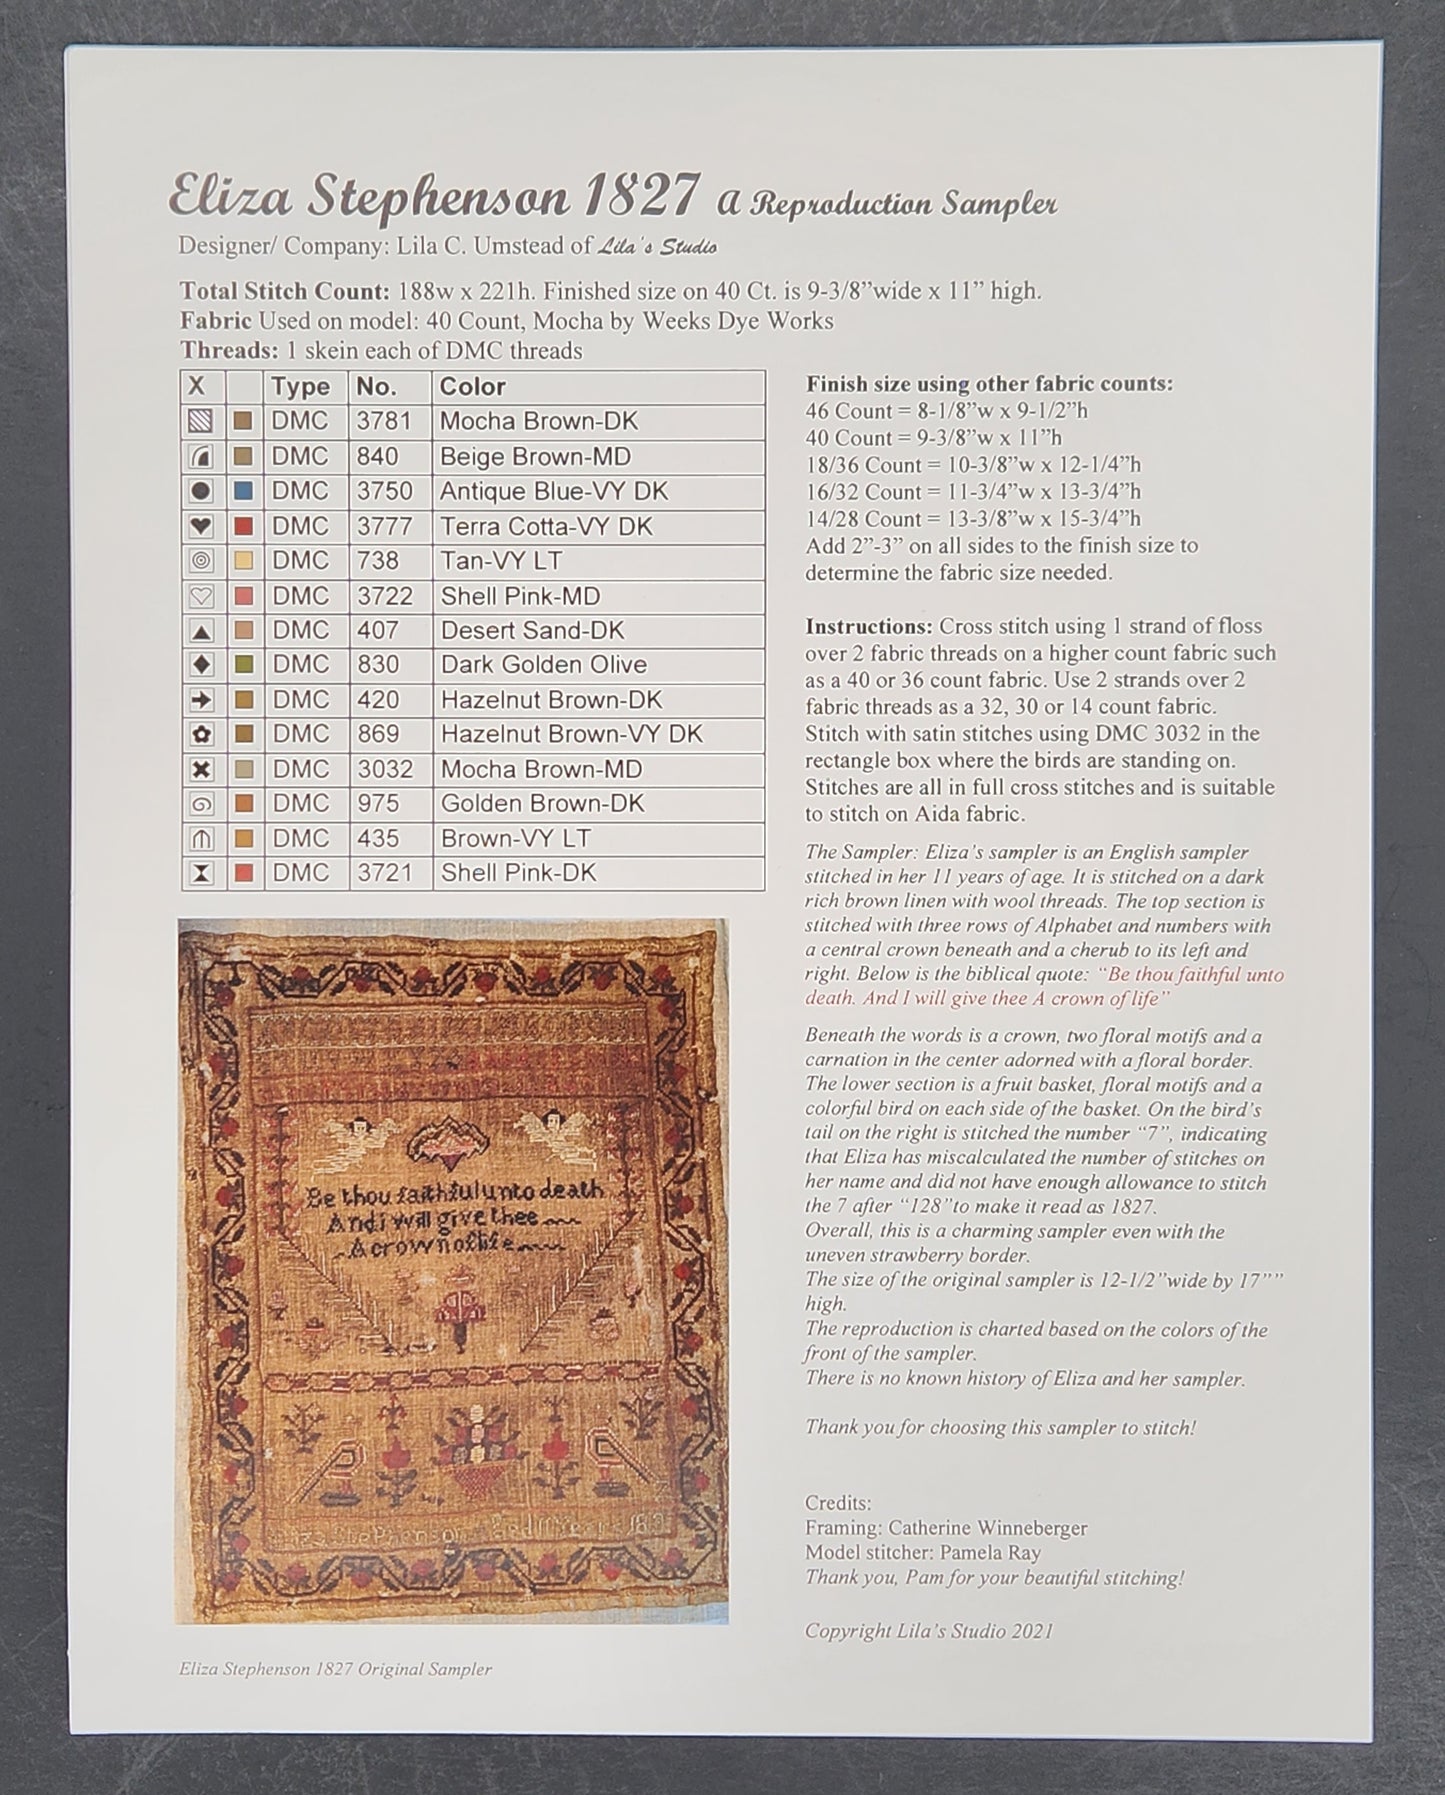 Eliza Stephenson 1827 A Reproduction Sampler
Designer/ Company: Lila C. Umstead of Lila's Studio
Total Stitch Count: 188w x 221h. Finished size on 40 Ct. is 9-3/8”wide x 11” high.
Fabric Used on model: 40 Count, Mocha by Weeks Dye Works
Threads: 1 skein each of DMC threads
X Type No. Color
DMC 3781 Mocha Brown-DK
DMC 840 Beige Brown-MD
DMC 3750 Antique Blue-VY DK
DMC 3777 Terra Cotta-VY DK
DMC 738 Tan-VY LT
DMC 3722 Shell Pink-MD
DMC 407 Desert Sand-DK
DMC 830 Dark Golden Olive
DMC 420 Hazelnut Brown-DK
DMC 869 Hazelnut Brown-VY DK
DMC 3032 Mocha Brown-MD
DMC 975 Golden Brown-DK
DMC 435 Brown-VY LT
DMC 3721 Shell Pink-DK
Be thou faithful unto death
And i will give thee
A crown of life
Eliza Stephenson 1827 Original Sampler
Finish size using other fabric counts:
46 Count = 8-1/8”w x 9-1/2”h
40 Count = 9-3/8”w x 11”h
18/36 Count = 10-3/8”w x 12-1/4”h
16/32 Count = 11-3/4”w x 13-3/4”h
14/28 Count = 13-3/8”w x 15-3/4”h
Add 2”-3” on all sides to the finish size to
determine the fabric size needed.
Instructions: Cross stitch using 1 strand of floss
over 2 fabric threads on a higher count fabric such
as a 40 or 36 count fabric. Use 2 strands over 2
fabric threads as a 32, 30 or 14 count fabric.
Stitch with satin stitches using DMC 3032 in the
rectangle box where the birds are standing on.
Stitches are all in full cross stitches and is suitable
to stitch on Aida fabric.
The Sampler: Eliza’s sampler is an English sampler
stitched in her 11 years of age. It is stitched on a dark
rich brown linen with wool threads. The top section is
stitched with three rows of Alphabet and numbers with
a central crown beneath and a cherub to its left and
right. Below is the biblical quote: “Be thou faithful unto
death. And I will give thee A crown of life”
Beneath the words is a crown, two floral motifs and a
carnation in the center adorned with a floral border.
The lower section is a fruit basket, floral motifs and a
colorful bird on each side of the basket. On the bird’s
tail on the right is stitched the number “7”, indicating
that Eliza has miscalculated the number of stitches on
her name and did not have enough allowance to stitch
the 7 after “128”to make it read as 1827.
Overall, this is a charming sampler even with the
uneven strawberry border.
The size of the original sampler is 12-1/2”wide by 17””
high.
The reproduction is charted based on the colors of the
front of the sampler.
There is no known history of Eliza and her sampler.
Thank you for choosing this sampler to stitch!
Credits:
Framing: Catherine Winneberger
Model stitcher: Pamela Ray
Thank you, Pam for your beautiful stitching!
Copyright Lila’s Studio 2021